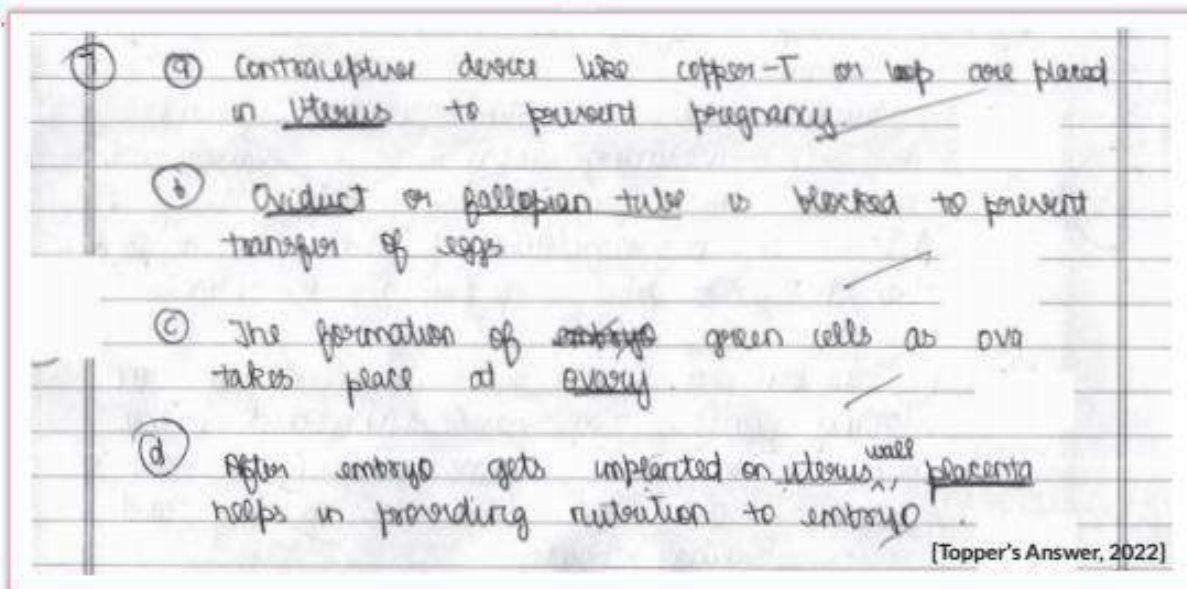 7 a Contraceptive device like copper-T or loop are placed
in Uterus to prevent pregnancy.
b Oviduct or fallopian tube is blocked to prevent
transfer of eggs
c The formation of embryo green cells as ova
takes place at ovary.
d After embryo gets implanted on uterus wall, placenta
helps in providing nutrition to embryo.
[Topper's Answer, 2022]